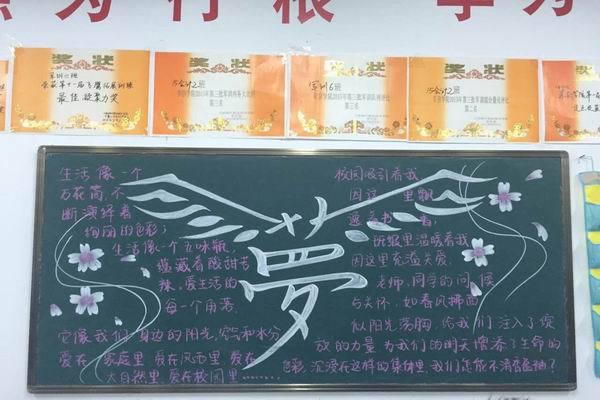 为 行 根
奖状
奖状
奖状
奖状
最佳效果奖
15会计2班
第三名
军训6班
第三名
15会计2班
第三名
生活像一个
万花筒,不
断演绎着
绚丽的色彩;
生活像一个五味瓶,
蕴藏着酸甜苦
辣。爱生活的
每一个角落,
它像我们身边的阳光,空气和水分
爱在家庭里 爱在风雨里 爱在
大自然里,爱在校园里……
夢
校园吸引着我,
因这里飘
逸着书香;
班级里温暖着我
因这里充溢关爱。
老师,同学的问候
与关怀,如春风拂面
似阳光荡胸,给我们注入了绽
放的力量 为我们的明天增添了生命的
色彩,沉浸在这样的集体里,我们怎能不清音盈袖?